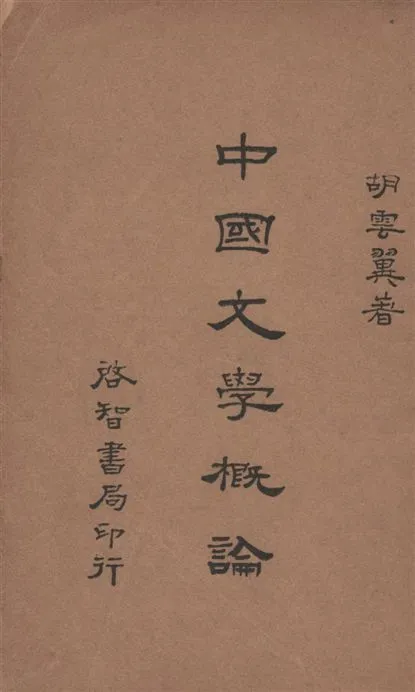 胡雲翼著
中國文學概論
啓智書局印行